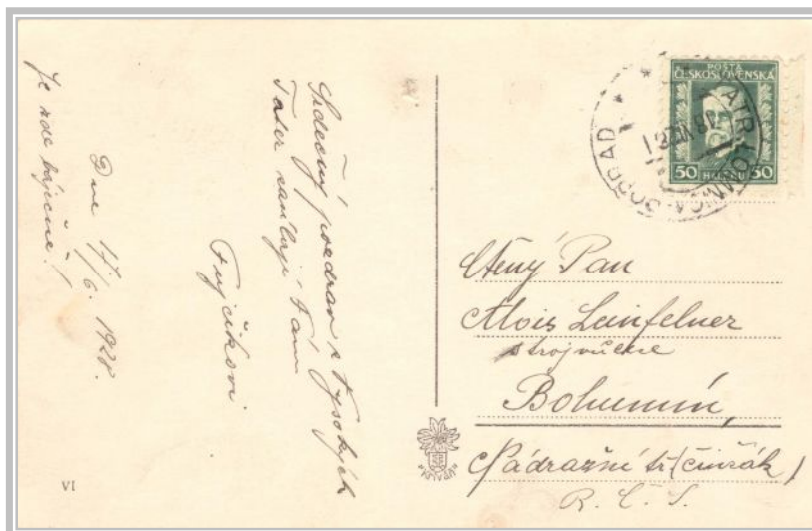 Srdečný pozdrav z Vysokých
Tater zasílají Vám
Fujčíkovi
Dne 17/6. 1928.
Je zde báječně!
VI
POŠTA
ČESKOSLOVENSKÁ
50 HALÉŘŮ 50
Ctěný Pan
Alois Leinfelner
strojvůdce
Bohumín,
Nádražní tř. (činžák)
R. Č. S.